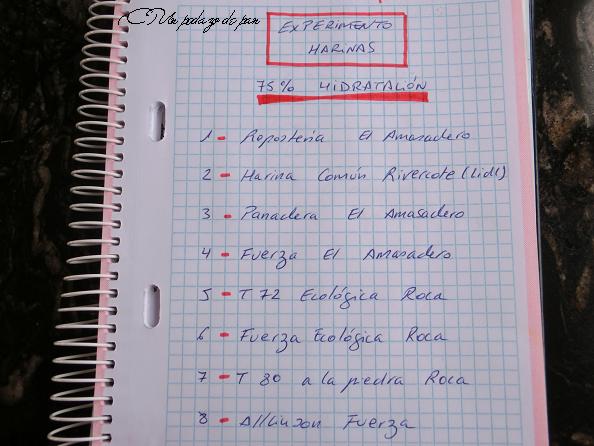 Un pedazo de pan
EXPERIMENTO
HARINAS
75% HIDRATACIÓN
1 - Repostería El Amasadero
2 - Harina Común Rivercote (Lidl)
3 - Panadera El Amasadero
4 - Fuerza El Amasadero
5 - T 72 Ecológica Roca
6 - Fuerza Ecológica Roca
7 - T 80 a la piedra Roca
8 - Allinson Fuerza